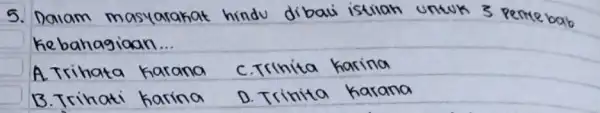 5. Dalam masyarakat hindu dibali istilah untuk 3 Penyebab
Kebahagiaan...
A. Trihata Karana C. Trinita Karina
B. Trihati Karina D. Trinita Karana